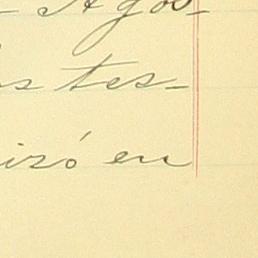 - Agos-
s tes-
izó en